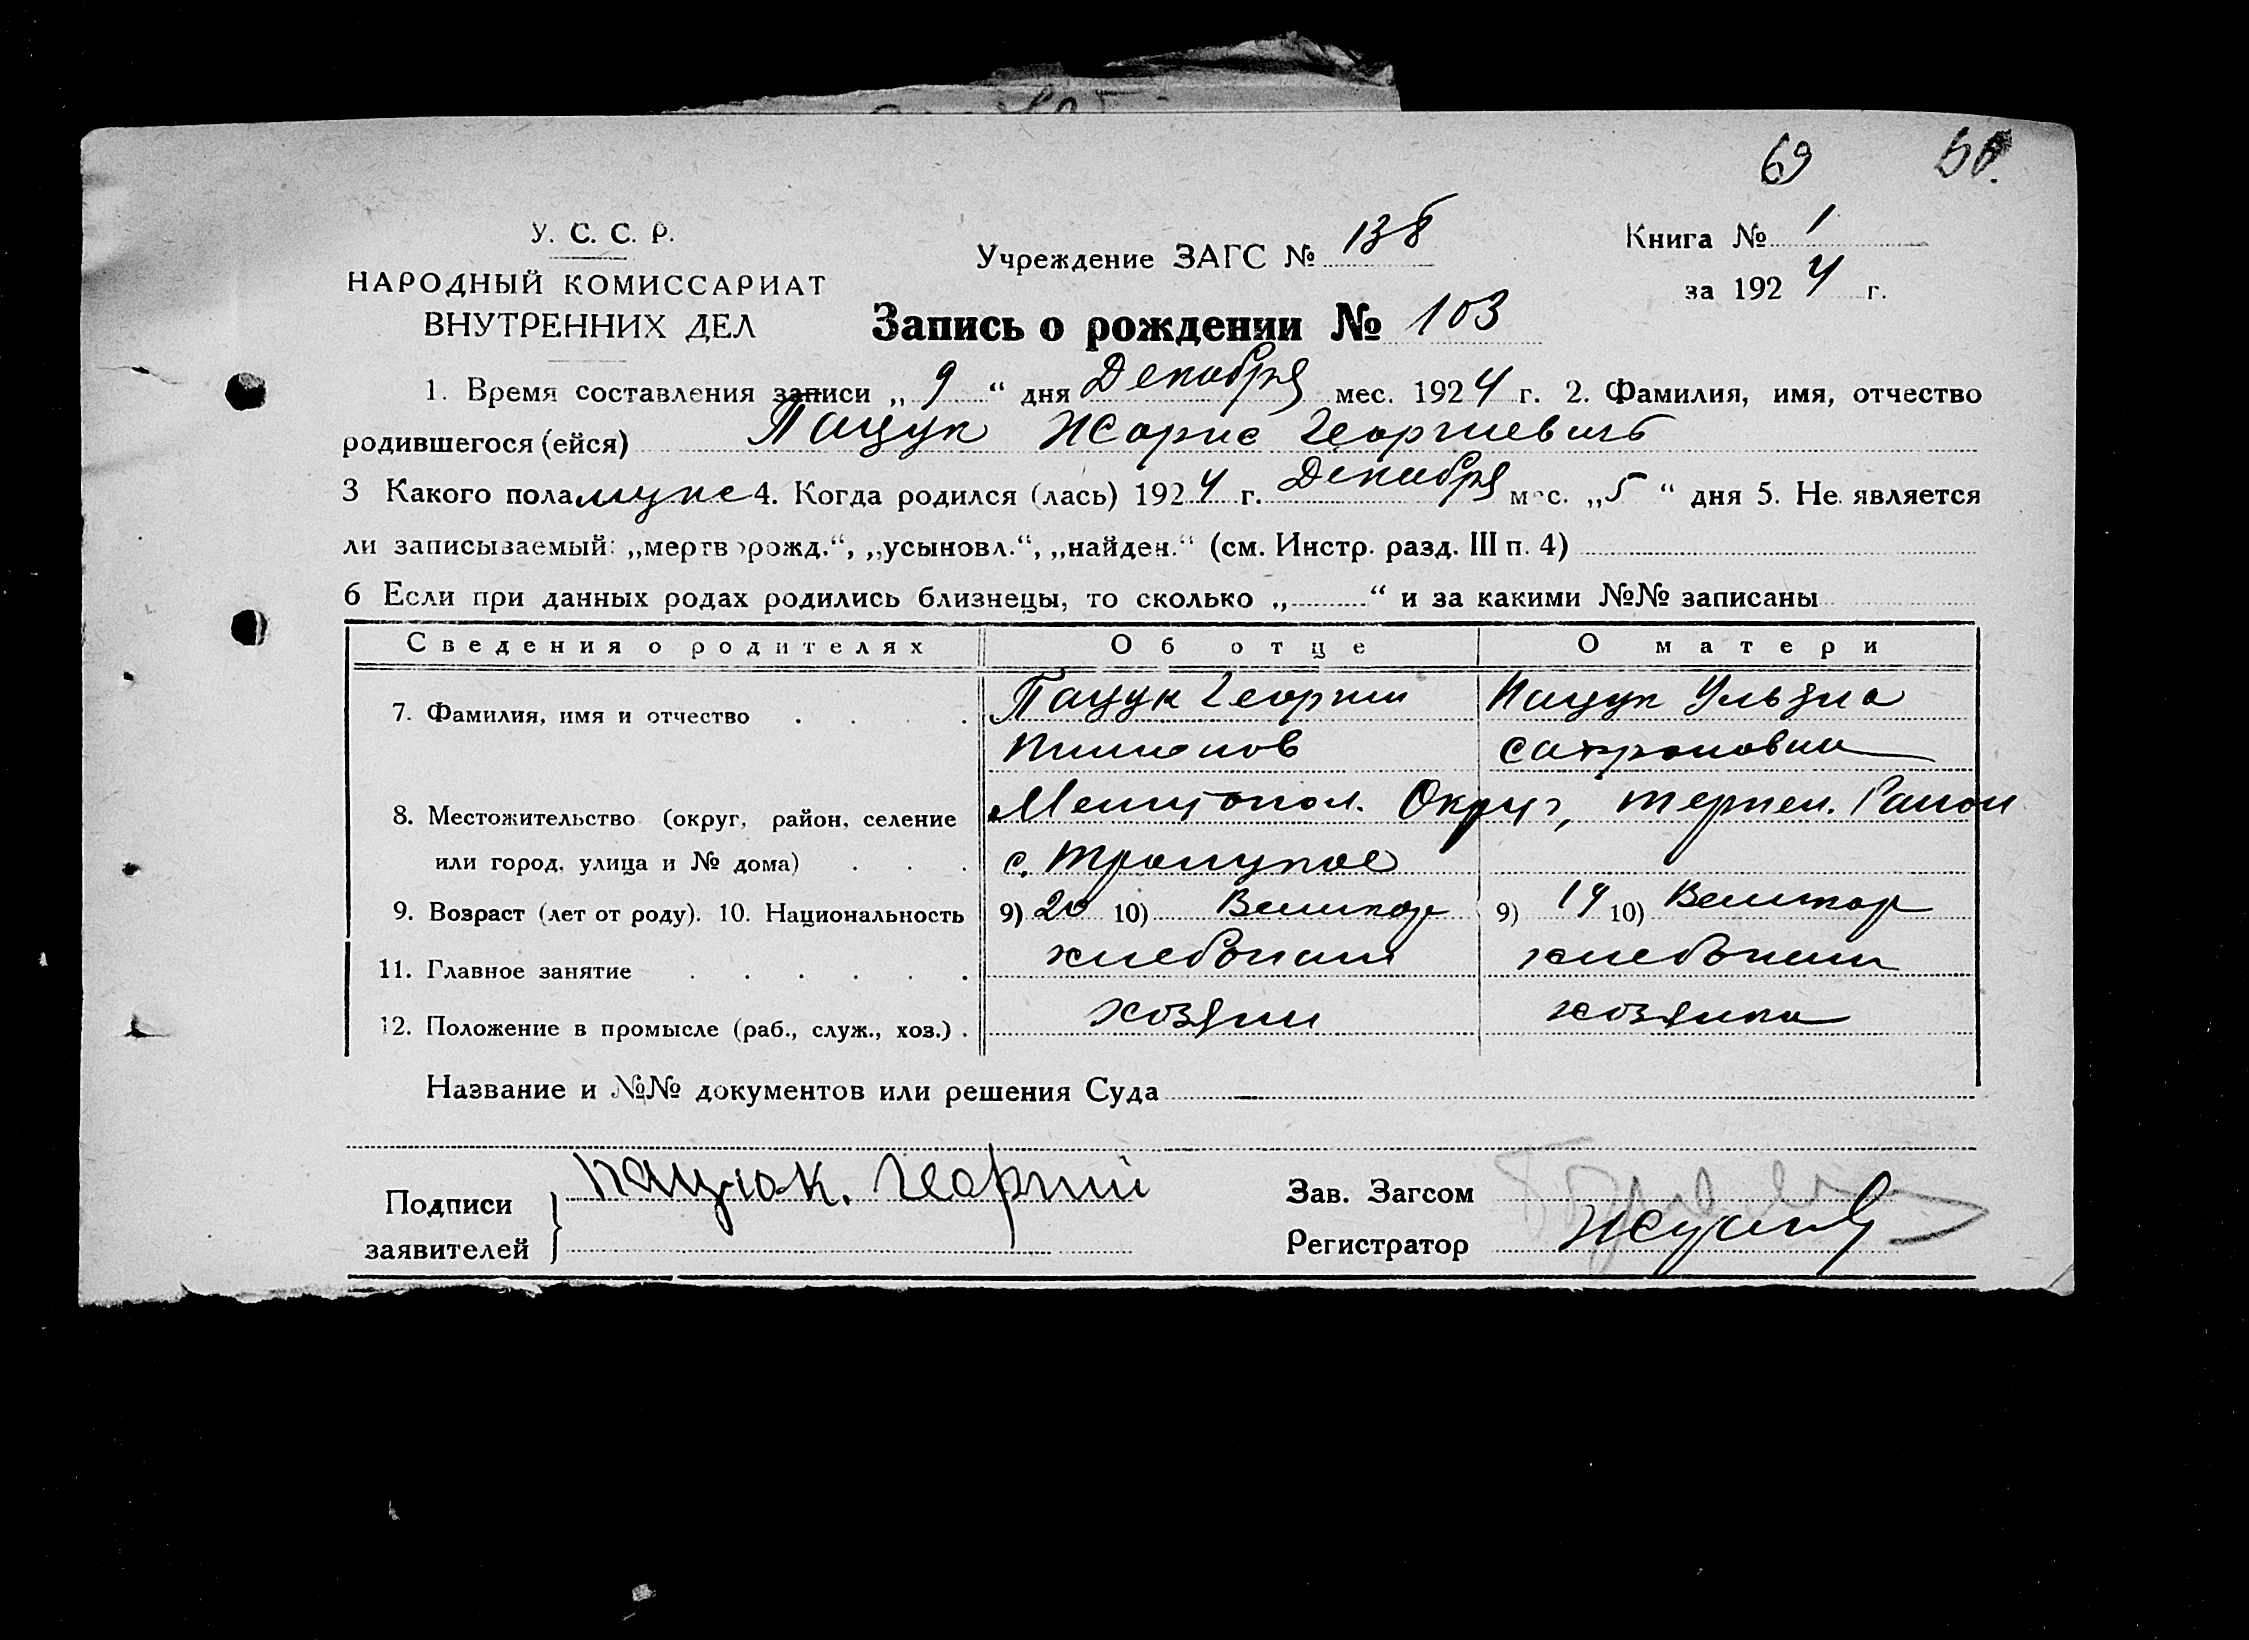 69
У. С. С. Р.
НАРОДНЫЙ КОМИССАРИАТ
ВНУТРЕННИХ ДЕЛ
Учреждение ЗАГС № 138
Книга № 1
за 1924 г.
Запись о рождении № 103
1. Время составления записи „ 9 “ дня Декабря мес. 1924 г. 2. Фамилия, имя, отчество
родившегося (ейся) Пацук Жорис Георгиевич
3 Какого пола мужс 4. Когда родился (лась) 1924 г. Декабря мес. „5“ дня 5. Не является
ли записываемый: „мертворожд.“, „усыновл.“, „найден.“ (см. Инстр. разд. III п. 4)
6 Если при данных родах родились близнецы, то сколько „ “ и за какими №№ записаны
Сведения о родителях Об отце О матери
7. Фамилия, имя и отчество Пацук Георгии Пацук Ульяна
Пименов Сафроновна
8. Местожительство (округ, район, селение Мелитопол. Округ, Терпен. Раион
или город, улица и № дома) с.
9. Возраст (лет от роду). 10. Национальность 9) 20 10) Великор 9) 19 10) Великор
11. Главное занятие хлебопаш хлебопаш
12. Положение в промысле (раб., служ., хоз.) хозяин хозяика
Название и №№ документов или решения Суда
Подписи
заявителей
Пацюк. Георгий
Зав. Загсом
Регистратор